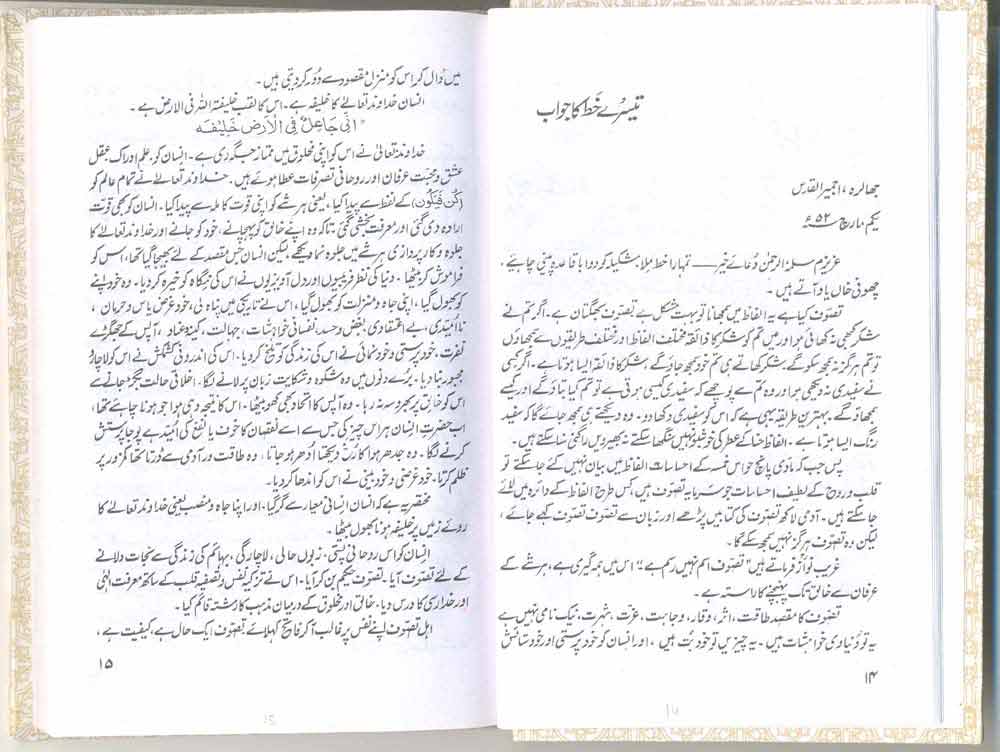 تیسرے خط کا جواب
جھالرہ، اجمیر القدس
یکم مارچ ۵۲ء
عزیزم سلمہ الرحمٰن دُعائے خیر —— تمہارا خط ملا، شکیلہ کو دوا باقاعدہ پینی چاہیئے،
چھوٹی خاں یاد آتے ہیں۔
تصوّف کیا ہے یہ الفاظ میں سمجھانا تو بہت مشکل ہے تصوّف بھگتان ہے۔ اگر تم نے
شکر کبھی نہ کھائی ہو اور میں تم کو شکر کا ذائقہ مختلف الفاظ اور مختلف طریقوں سے سمجھاؤں
تو تم ہرگز نہ سمجھ سکو گے، شکر کھاتے ہی تم خود سمجھ جاؤ گے، شکر کا ذائقہ ایسا ہوتا ہے۔ اگر کبھی
نے سفیدی نہ دیکھی ہو اور وہ تم سے پوچھے کہ سفیدی کیسی ہوتی ہے تو تم کیا بتاؤ گے اور کیسے
سمجھاؤ گے۔ بہترین طریقہ یہی ہے کہ اس کو سفیدی دکھا دو۔ وہ دیکھتے ہی سمجھ جائے گا کہ سفید
رنگ ایسا ہوتا ہے۔ الفاظ حنا کے عطر کی خوشبو نہیں سنگھا سکتے نہ بھیرویں راگنی سنا سکتے ہیں۔
پس جب کہ مادّی پانچ حواس خمسہ کے احساسات الفاظ میں بیان نہیں کئے جا سکتے تو
قلب و روح کے لطیف احساسات جو سرمایہ تصوّف ہیں، کس طرح الفاظ کے دائرہ میں لائے
جا سکتے ہیں۔ آدمی لاکھ تصوّف کی کتابیں پڑھے اور زبان سے تصوّف تصوّف کہے جائے،
لیکن وہ تصوّف ہرگز نہیں سمجھ سکے گا۔
غریب نوازؒ فرماتے ہیں "تصوّف اسم نہیں رسم ہے"۔ اس میں ہمہ گیری ہے، ہر شے کے
عرفان سے خالق تک پہنچنے کا راستہ ہے۔
تصوّف کا مقصد طاقت، اثر، وقار، وجاہت، عزت، شہرت، نیک نامی نہیں ہے
یہ تو دُنیاوی خواہشات ہیں۔ یہ چیزیں تو خود بُت ہیں، اور انسان کو خود پرستی اور خود ستائش
۱۴
میں ڈال کر اس کو منزل مقصود سے دُور کر دیتی ہیں۔
انسان خداوند تعالےٰ کا خلیفہ ہے۔ اس کا لقب خلیفۃ اللہ فی الارض ہے۔
"انّی جَاعِلٌ فِی الْاَرْضِ خَلِیْفَہ
خداوند تعالیٰ نے اس کو اپنی مخلوق میں ممتاز جگہ دی ہے۔ انسان کو علم ادراک عقل
عشق و محبت عرفان اور روحانی تصرفات عطا ہوئے ہیں۔ خداوند تعالےٰ نے تمام عالم کو
(کُن فَیَکُون) کے لفظ سے پیدا کیا، یعنی ہر شے کو اپنی قوت کاملہ سے پیدا کیا۔ انسان کو بھی قوّت
ارادہ دی گئی اور معرفت بخشی گئی، تاکہ وہ اپنے خالق کو پہچانے، خود کو جانے اور خداوند تعالےٰ کا
جلوہ و کار پردازی ہر شے میں جلوہ نما دیکھے، لیکن انسان جس مقصد کے لئے بھیجا گیا تھا، اس کو
فراموش کر بیٹھا۔ دنیا کی نظر فریبیوں اور دل آویزیوں نے اس کی نگاہ کو خیرہ کر دیا۔ وہ خود اپنے کو
بھول گیا، اپنی جاہ و منزلت کو بھول گیا، اس نے تاریکی میں پناہ لی، خود غرض یاس و حرمان،
نا امّیدی، بے اعتقادی، بغض و حسد، نفسانی خواہشات، جہالت، کینہ و عناد، آپس کے جھگڑے
نفرت، خود پرستی و خود نمائی نے اس کی زندگی کو تلخ کر دیا۔ اس کی اندرونی کشمکش نے اس کو لاچار و
مجبور بنا دیا۔ بُرے دنوں میں وہ شکوہ و شکایت زبان پر لانے لگا۔ اخلاقی حالت بگڑ جانے سے
اس کو خالق پر بھروسہ نہ رہا۔ وہ آپس کا اتحاد بھی کھو بیٹھا۔ اس کا نتیجہ وہی ہوا جو ہونا چاہئے تھا،
اب حضرت انسان ہر اس چیز کی جس سے اسے نقصان کا خوف یا نفع کی امّید ہے پوجا پرستش
کرنے لگا۔ وہ جدھر ہوا کا رُخ دیکھتا اُدھر ہو جاتا، وہ طاقت ور آدمی سے ڈرتا تھا مگر کمزور پر
ظلم کرتا، خود غرضی و خود بینی نے اس کو اندھا کر دیا۔
مختصر یہ ہے کہ انسان انسانی معیار سے گر گیا۔ اور اپنا جاہ و منصب یعنی خداوند تعالےٰ کا
روئے زمیں پر خلیفہ ہونا بھول بیٹھا۔
انسان کو اس روحانی پستی، زبوں حالی، لاچارگی، بہائم کی زندگی سے نجات دلانے
کے لئے تصوّف آیا۔ تصوّف حکیم بن کر آیا۔ اس نے تزکیہ نفس و تصفیہ قلب کے ساتھ معرفت الٰہی
اور خدارسی کا درس دیا۔ خالق اور مخلوق کے درمیان مذہب کا رشتہ قائم کیا۔
اہل تصوّف اپنے نفس پر غالب آ کر فاتح کہلائے، تصوّف ایک حال ہے، کیفیت ہے،
۱۵